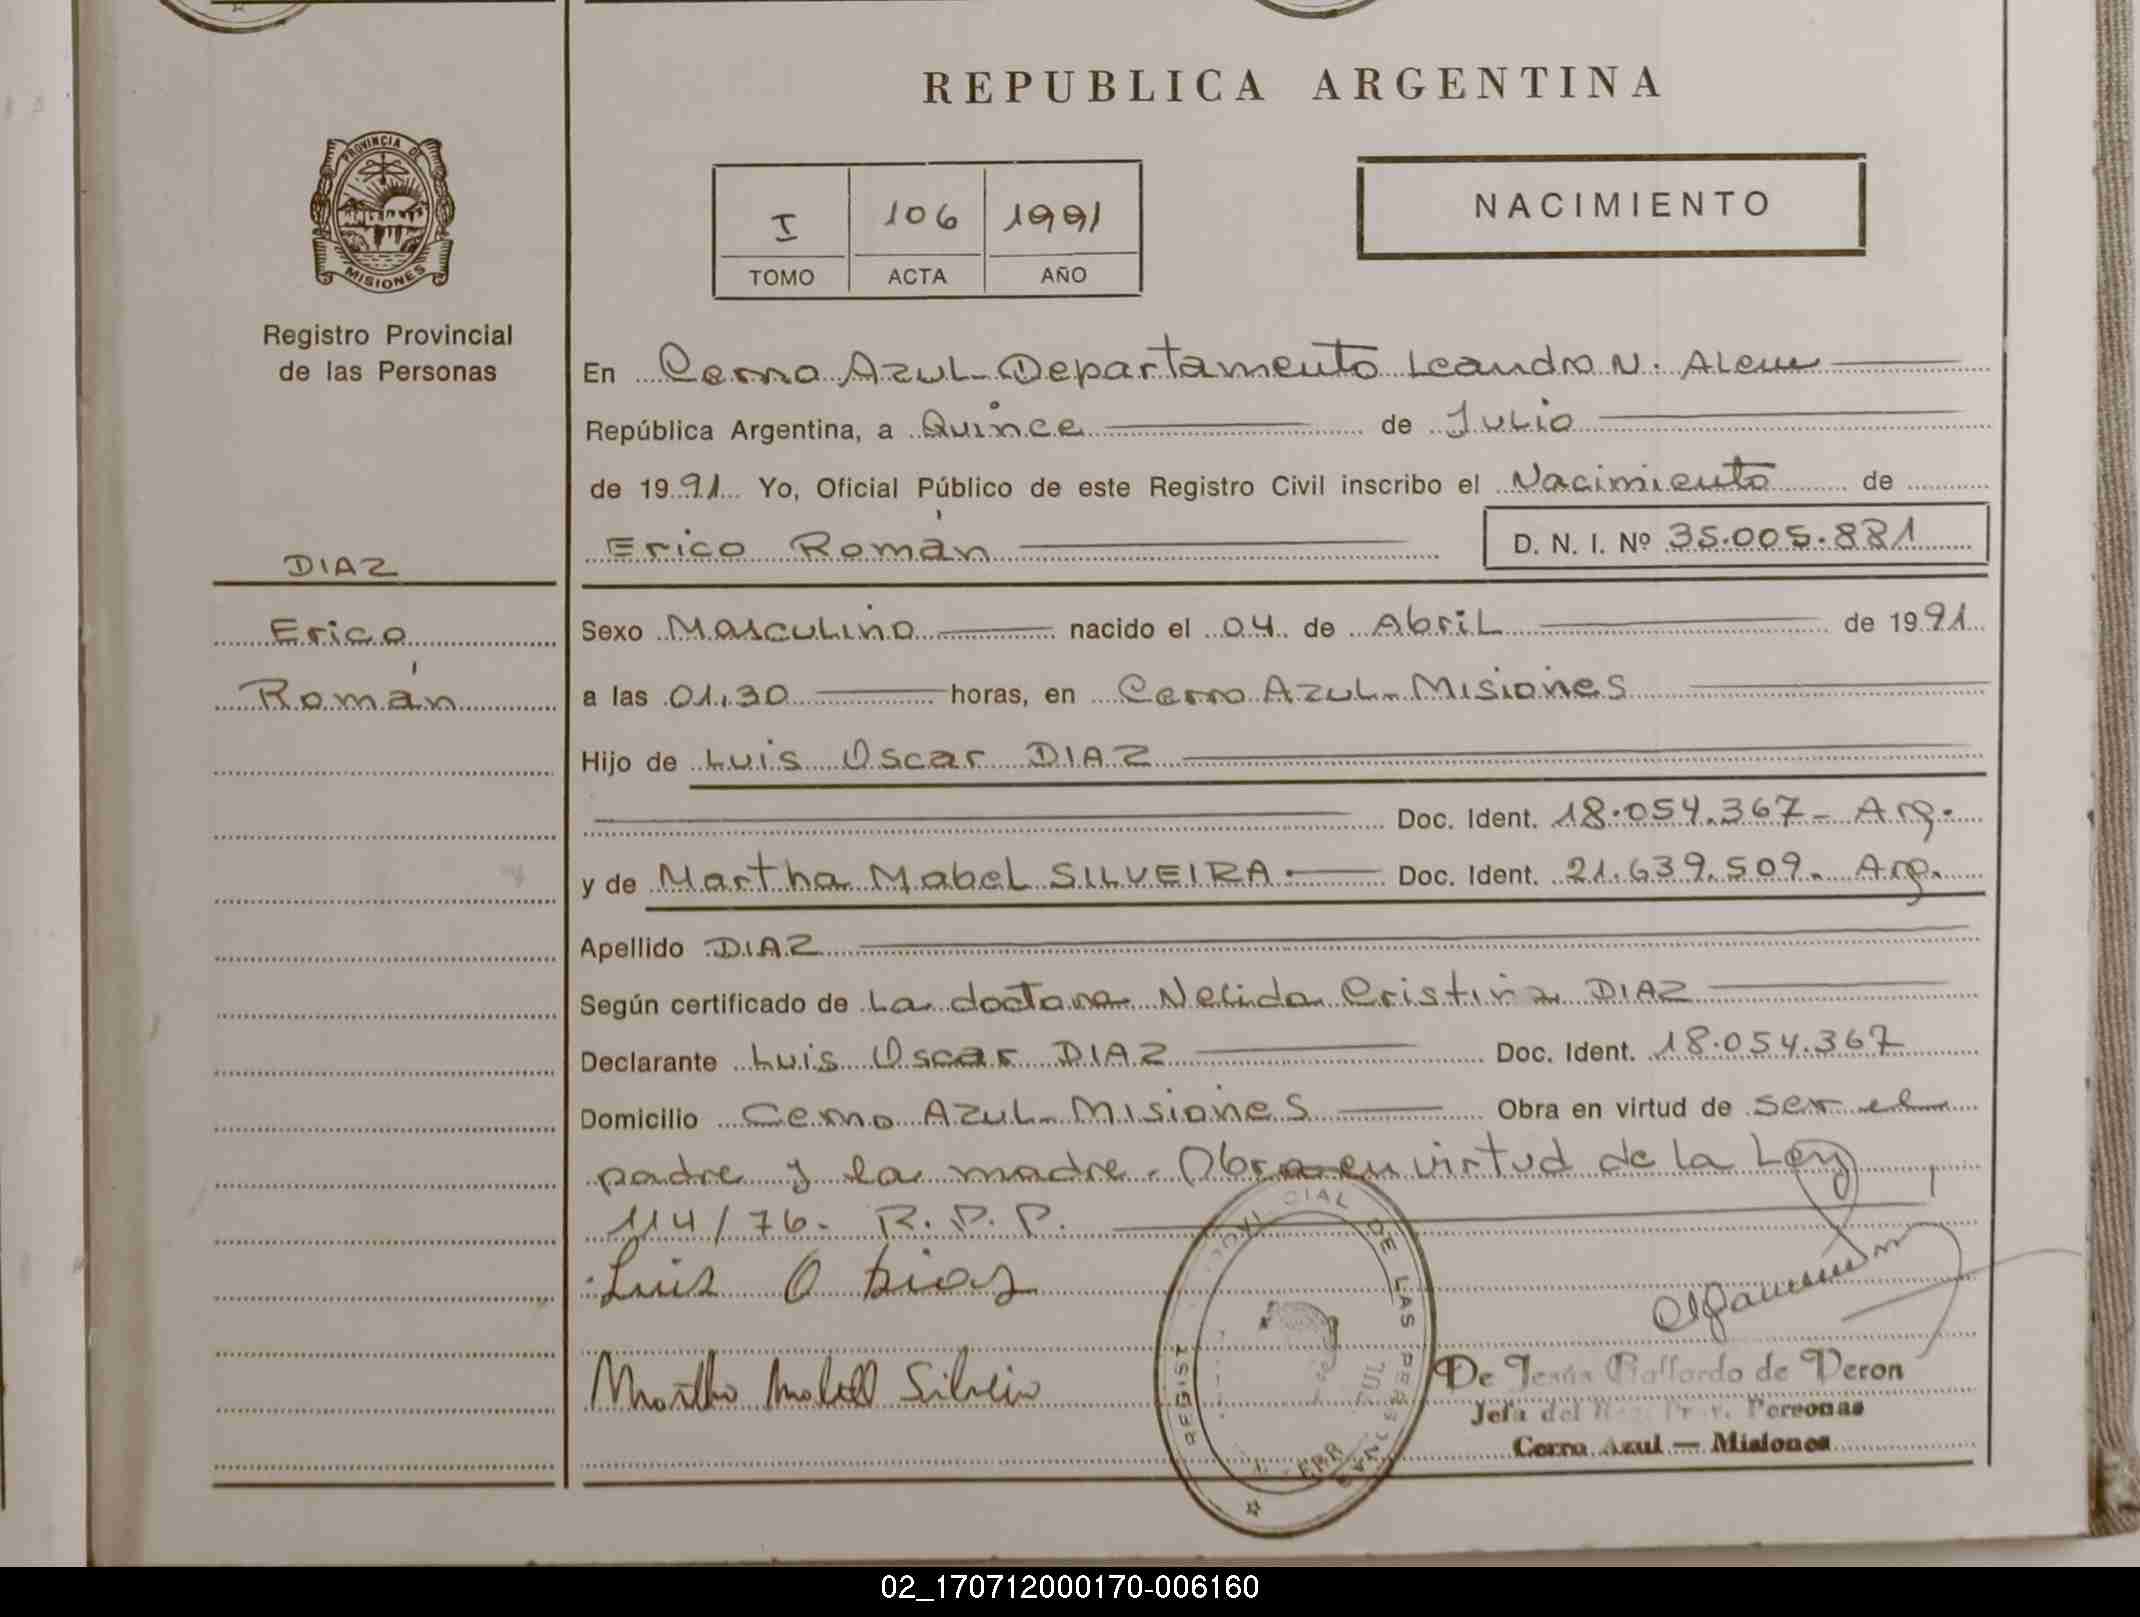 REPUBLICA ARGENTINA
PROVINCIA DE
MISIONES
Registro Provincial
de las Personas
I 106 1991
TOMO ACTA AÑO
NACIMIENTO
En Cerro Azul - Departamento Leandro N. Alem
República Argentina, a Quince de Julio
de 1991 Yo, Oficial Público de este Registro Civil inscribo el Nacimiento de
Erico Román D. N. I. Nº 35.005.881
DIAZ
Erico
Román
Sexo Masculino nacido el 04 de Abril de 1991
a las 01,30 horas, en Cerro Azul - Misiones
Hijo de Luis Oscar DIAZ
Doc. Ident. 18.054.367 - Arg.
y de Martha Mabel SILVEIRA. Doc. Ident. 21.639.509. Arg.
Apellido DIAZ
Según certificado de La doctora Nelida Cristina DIAZ
Declarante Luis Oscar DIAZ Doc. Ident. 18.054.367
Domicilio Cerro Azul - Misiones Obra en virtud de ser el
padre y la madre. Obra en virtud de la Ley
114/76. R. P. P.
Luis O Diaz
REGIST CIAL DE LAS PERSONAS
JUL
De Jesús Gallardo de Veron
Jefa del Reg. Prov. Personas
Cerro Azul — Misiones
02_170712000170-006160